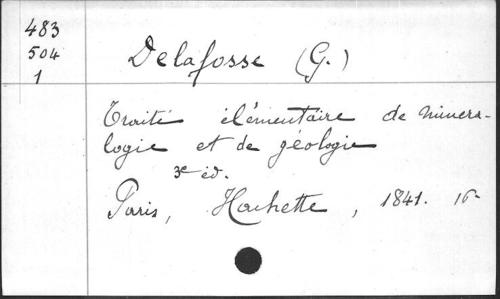 483
504
1
Delafosse (G.)
Traité élémentaire de minera-
logie et de géologie
3e éd.
Paris, Hachette, 1841. 16-